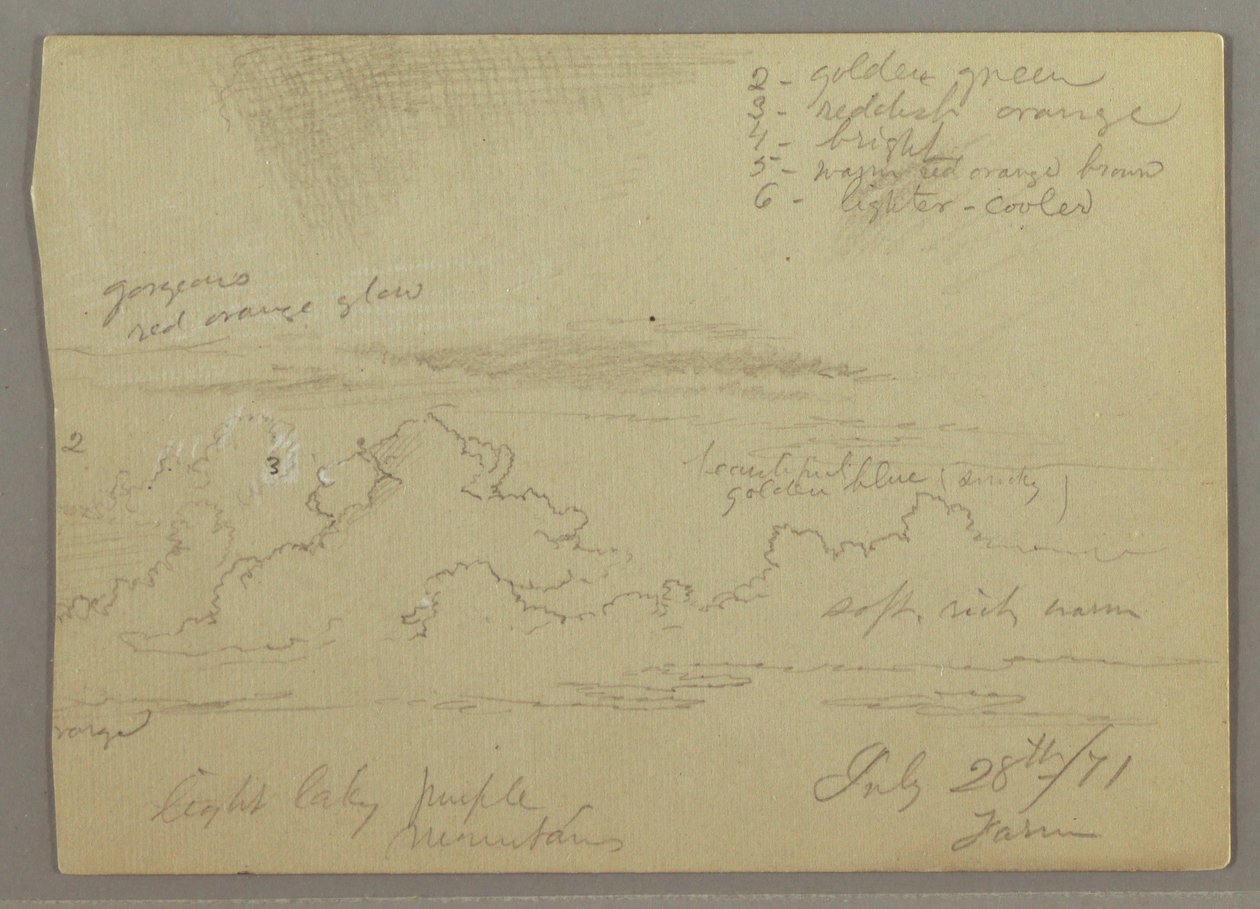 2 - golden green
3 - reddish orange
4 - bright
5 - warm red orange brown
6 - lighter - cooler
gorgeous
red orange glow
2
3
beautiful
golden blue (smoky)
soft, rich warm
light laky purple
mountains
July 28th/71
Farm